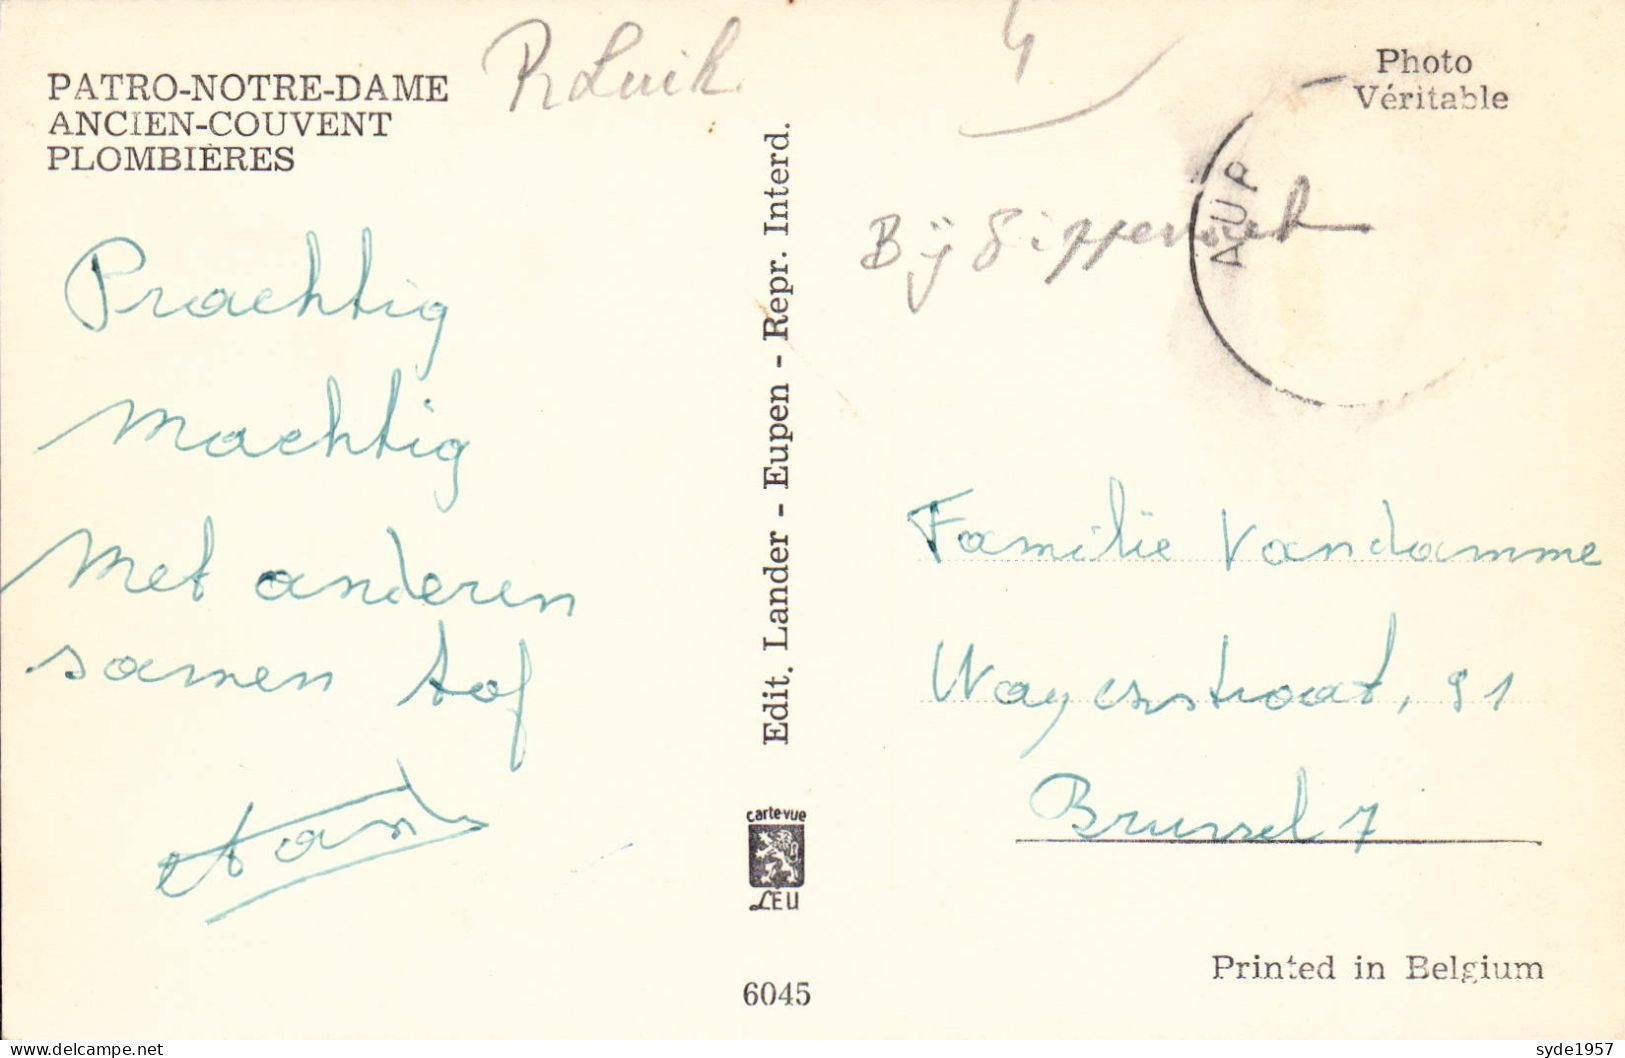 PATRO-NOTRE-DAME
ANCIEN-COUVENT
PLOMBIÈRES
Pr Luik
Prachtig
machtig
met anderen
samen tof
Edit. Lander - Eupen - Repr. Interd.
carte-vue
LEU
6045
Photo
Véritable
Bij
Familie Vandamme
Wayezstraat, 91
Brussel 7
Printed in Belgium
syde1957